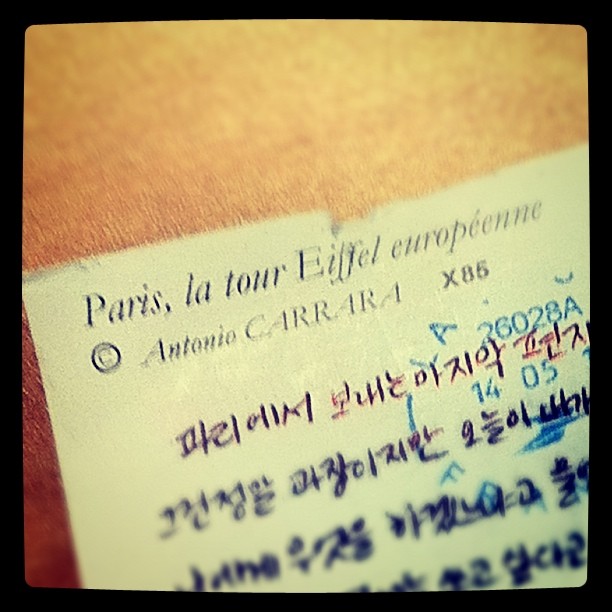 Paris, la tour Eiffel européenne
© Antonio CARRARA X86
26028A
14 05
파리에서 보내는 마지막 편지
그건 정말 과장이지만 오늘이 내가
하겠느냐고
쓰고 싶다고